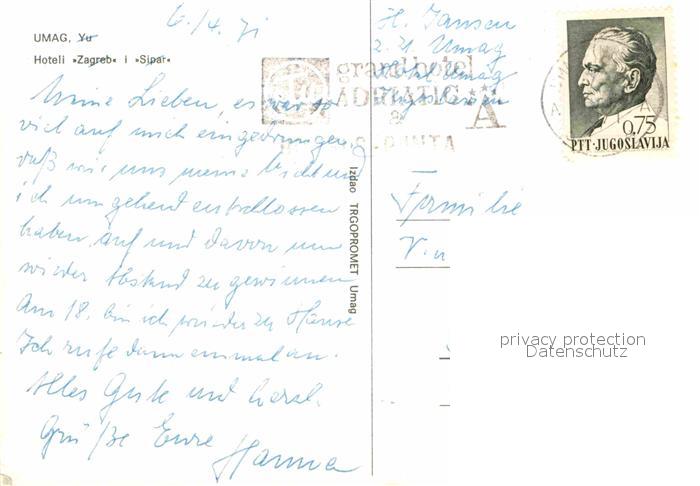 6./4. 71
UMAG, Yu
Hoteli »Zagreb« i »Sipar«
Meine Lieben, es war so
viel auf mich eingedrungen,
daß wir uns meine Licht und
ich umgehend entschlossen
haben, auf und davon um
wieder Abstand zu gewinnen
Am 18. bin ich wieder zu Hause
Ich rufe dann einmal an.
Alles Gute und herzl.
Grüße Eure
Hanna
Izdao TRGOPROMET Umag
H. Jansen
z. Zt. Umag
Hotel Umag
Jugoslawien
grand hotel
ADRIATIC
A
0,75
PTT·JUGOSLAVIJA
Familie
privacy protection
Datenschutz